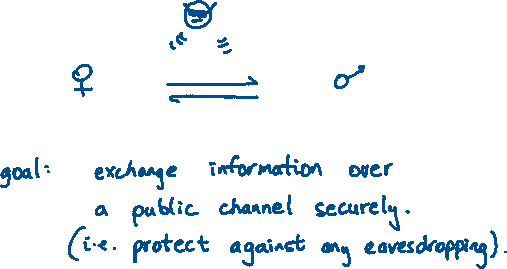 goal: exchange information over
a public channel securely.
(i.e. protect against any eavesdropping).